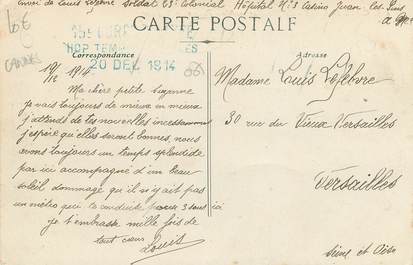 Envoi de Louis Lefebvre Soldat 23e Colonial Hôpital No 3 Casino Juan les Pins
16€
CANNES
CARTE POSTALE
15e CORPS
HOP. TEMP
20 DEC 1914
Correspondance
Adresse
19/12 1914
Ma chère petite
je vais toujours de mieux en mieux
j'attends de tes nouvelles incessamment
j'espère qu'elles seront bonnes, nous
avons toujours un temps splendide
par ici accompagné d'un beau
soleil, dommage qu'il n'y ait pas
un métro qui te conduite pour 3 sous ici
je t'embrasse mille fois de
tout cœur
Louis
Madame Louis Lefebvre
30 rue du Vieux Versailles
Versailles
Seine et Oise